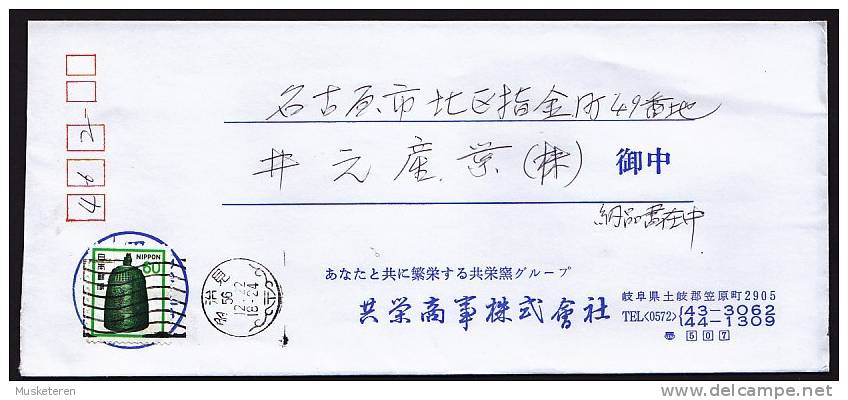 名古屋市北区指金町49番地
井元産業(株) 御中
納品書在中
462
日本郵便
NIPPON
60
56
12.22
18-24
あなたと共に繁栄する共栄窯グループ
共栄商事株式會社
岐阜県土岐郡笠原町2905
TEL<0572>{43-3062
{44-1309
507
Musketeren
delcampe.net